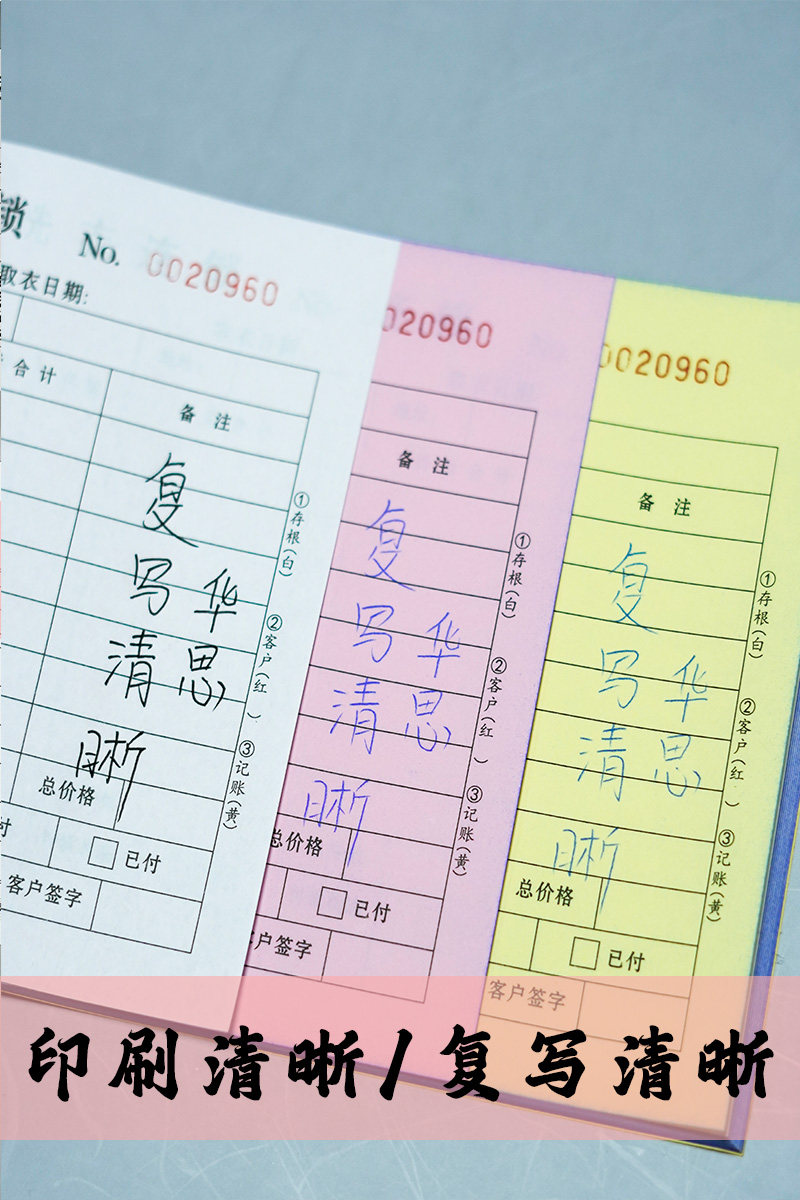 锁
No. 0020960
取衣日期:
合计 备注
复
写 华
清 思
晰
总价格
付 已付
客户签字
①存根(白) ②客户(红 ) ③记账(黄)
0020960
备注
复
写 华
清 思
晰
总价格
已付
客户签字
①存根(白) ②客户(红 ) ③记账(黄)
0020960
备注
复
写 华
清 思
晰
总价格
已付
客户签字
①存根(白) ②客户(红 ) ③记账(黄)
印刷清晰/复写清晰